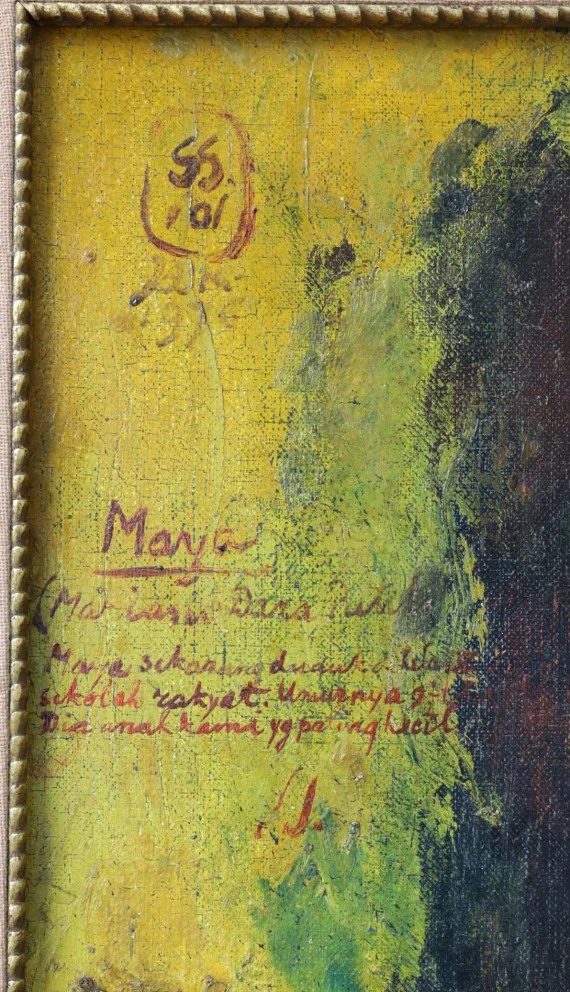 SS.
101
Maya
(Mariani Dara
Maya sekarang duduk di klas
sekolah rakyat. Umurnya 9
Dia anak kami yg paling kecil
S.